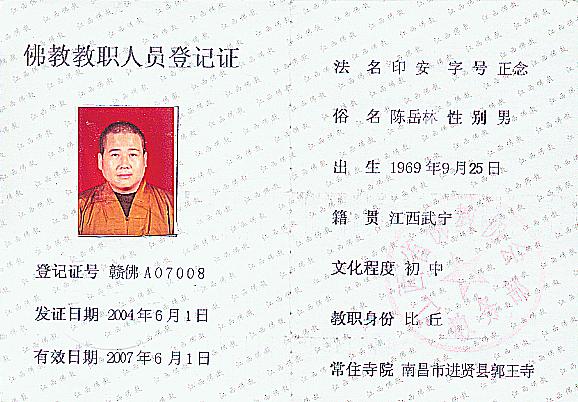 佛教教职人员登记证
登记证号 赣佛 A07008
发证日期 2004年6月1日
有效日期 2007年6月1日
法 名 印 安 字 号 正念
俗 名 陈岳林 性 别 男
出 生 1969年9月25日
籍 贯 江西武宁
文化程度 初 中
教职身份 比 丘
常住寺院 南昌市进贤县郭王寺